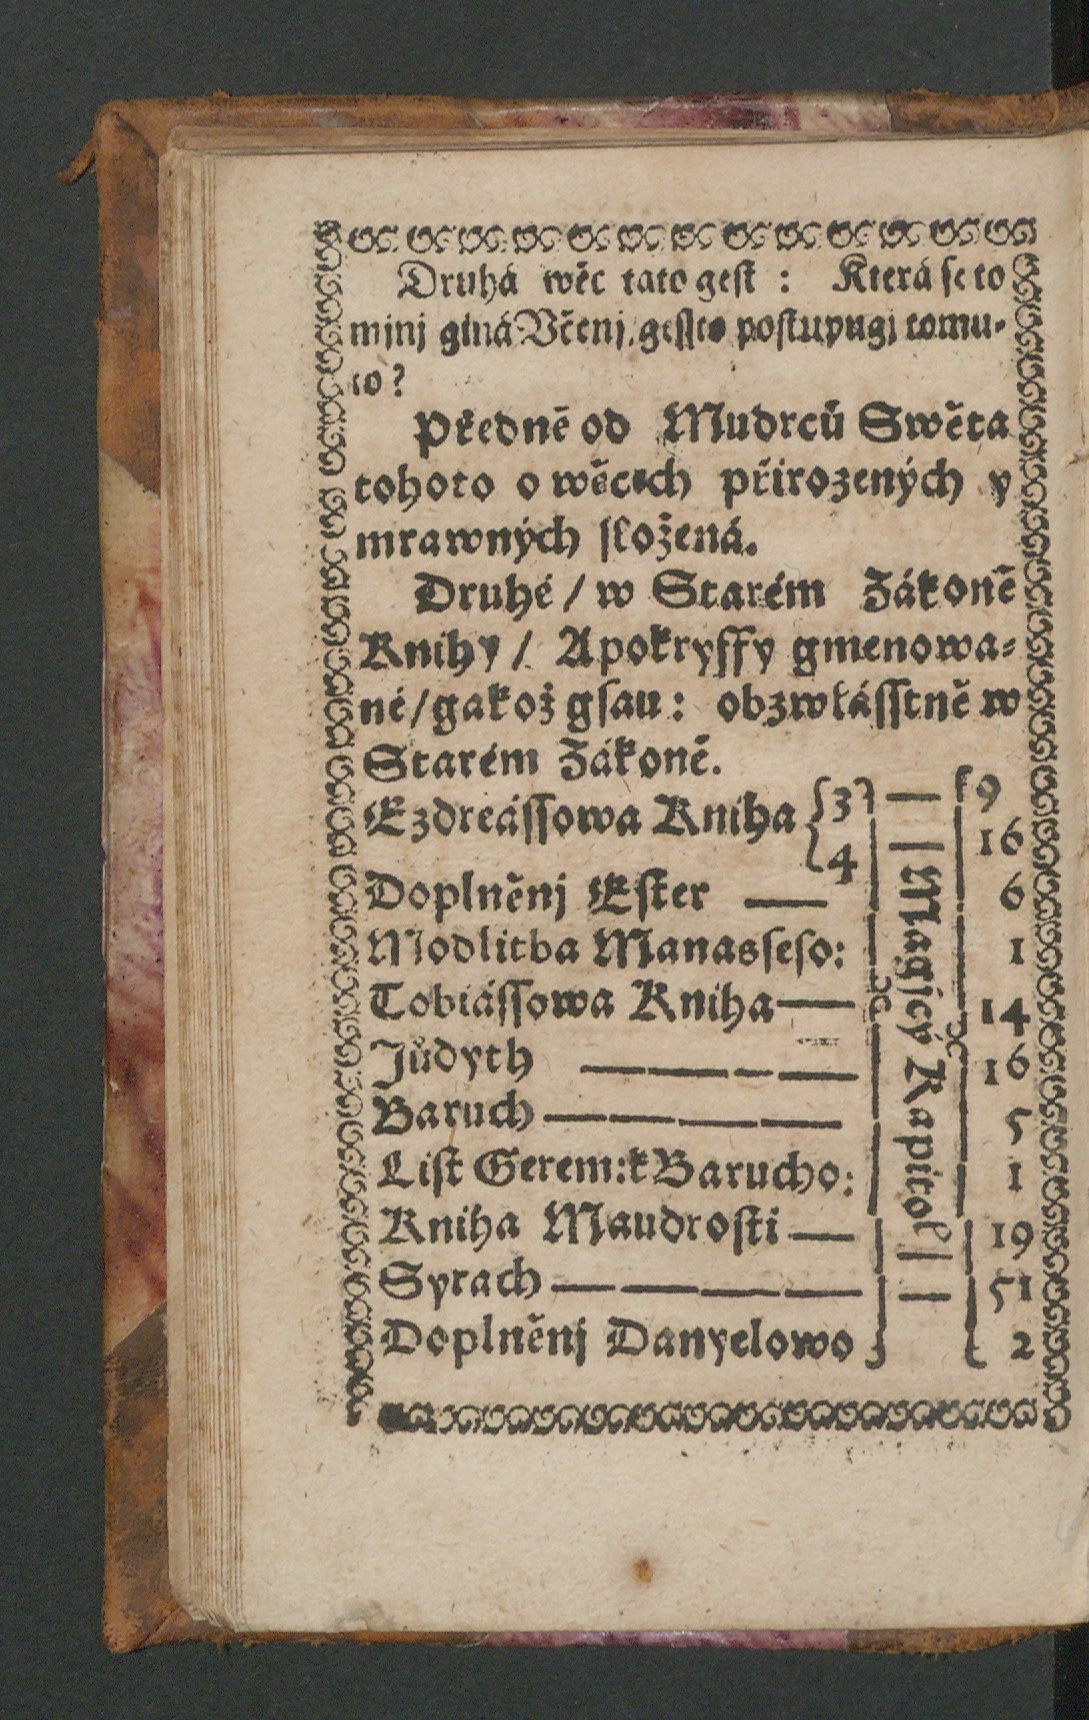 Druhá wěc tato gest : Která se to
mjnj giná Včenj, gessto postupugj tomu-
to?
Předně od Mudrců Swěta
tohoto o wěcech přirozených y
mrawných složená.
Druhé / w Starém Zákoně
Knihy / Apokryffy gmenowa-
né / gakož gsau : obzwlásstně w
Starém Zákoně.
Ezdreássowa Kniha 3 — 9
4 16
Doplněnj Ester — 6
Modlitba Manasseso: 1
Tobiássowa Kniha — 14
Jůdyth — 16
Baruch — 5
List Gerem: k Barucho: 1
Kniha Maudrosti — 19
Syrach — 51
Doplněnj Danyelowo 2
Magjcý Kapitol